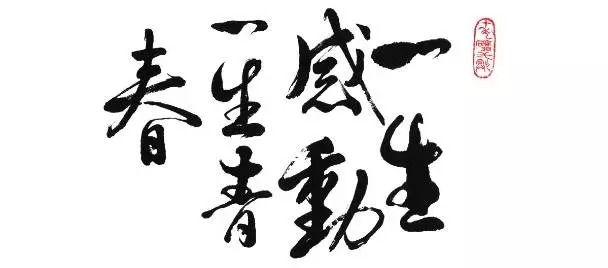 一生
感動
一生青
春